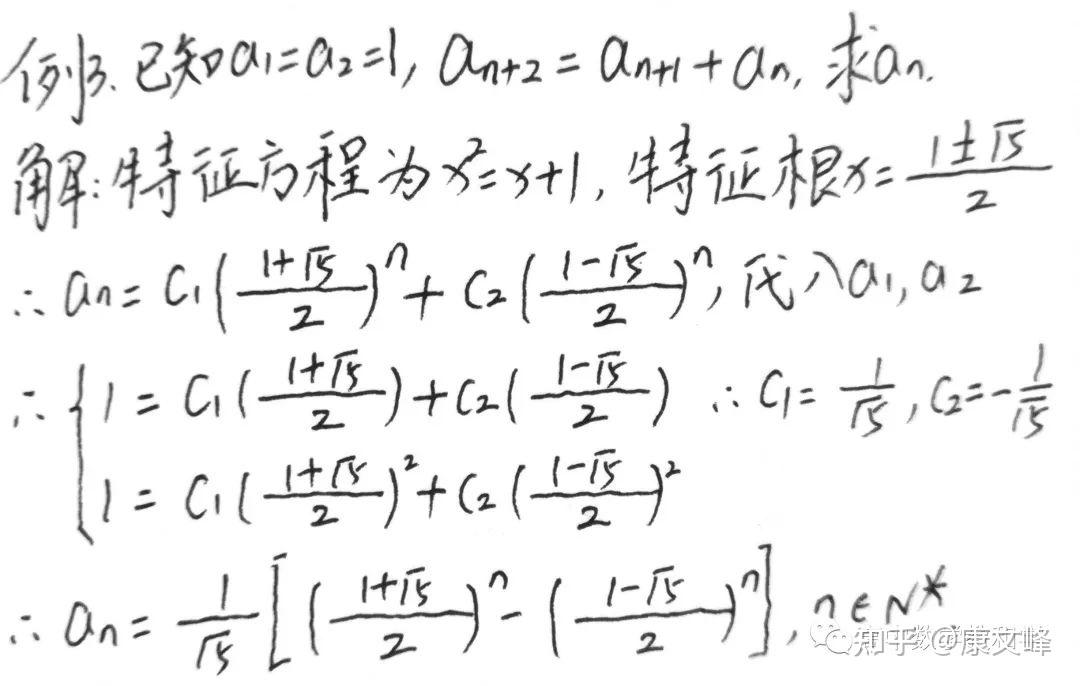 例3. 已知a₁=a₂=1, aₙ₊₂=aₙ₊₁+aₙ, 求aₙ.
解:特征方程为x²=x+1, 特征根x=(1±√5)/2
∴aₙ=C₁((1+√5)/2)ⁿ+C₂((1-√5)/2)ⁿ, 代入a₁, a₂
∴{1=C₁((1+√5)/2)+C₂((1-√5)/2) ∴C₁=1/√5, C₂=-1/√5
1=C₁((1+√5)/2)²+C₂((1-√5)/2)²
∴aₙ=1/√5[((1+√5)/2)ⁿ-((1-√5)/2)ⁿ], n∈N*
知乎 @康文峰